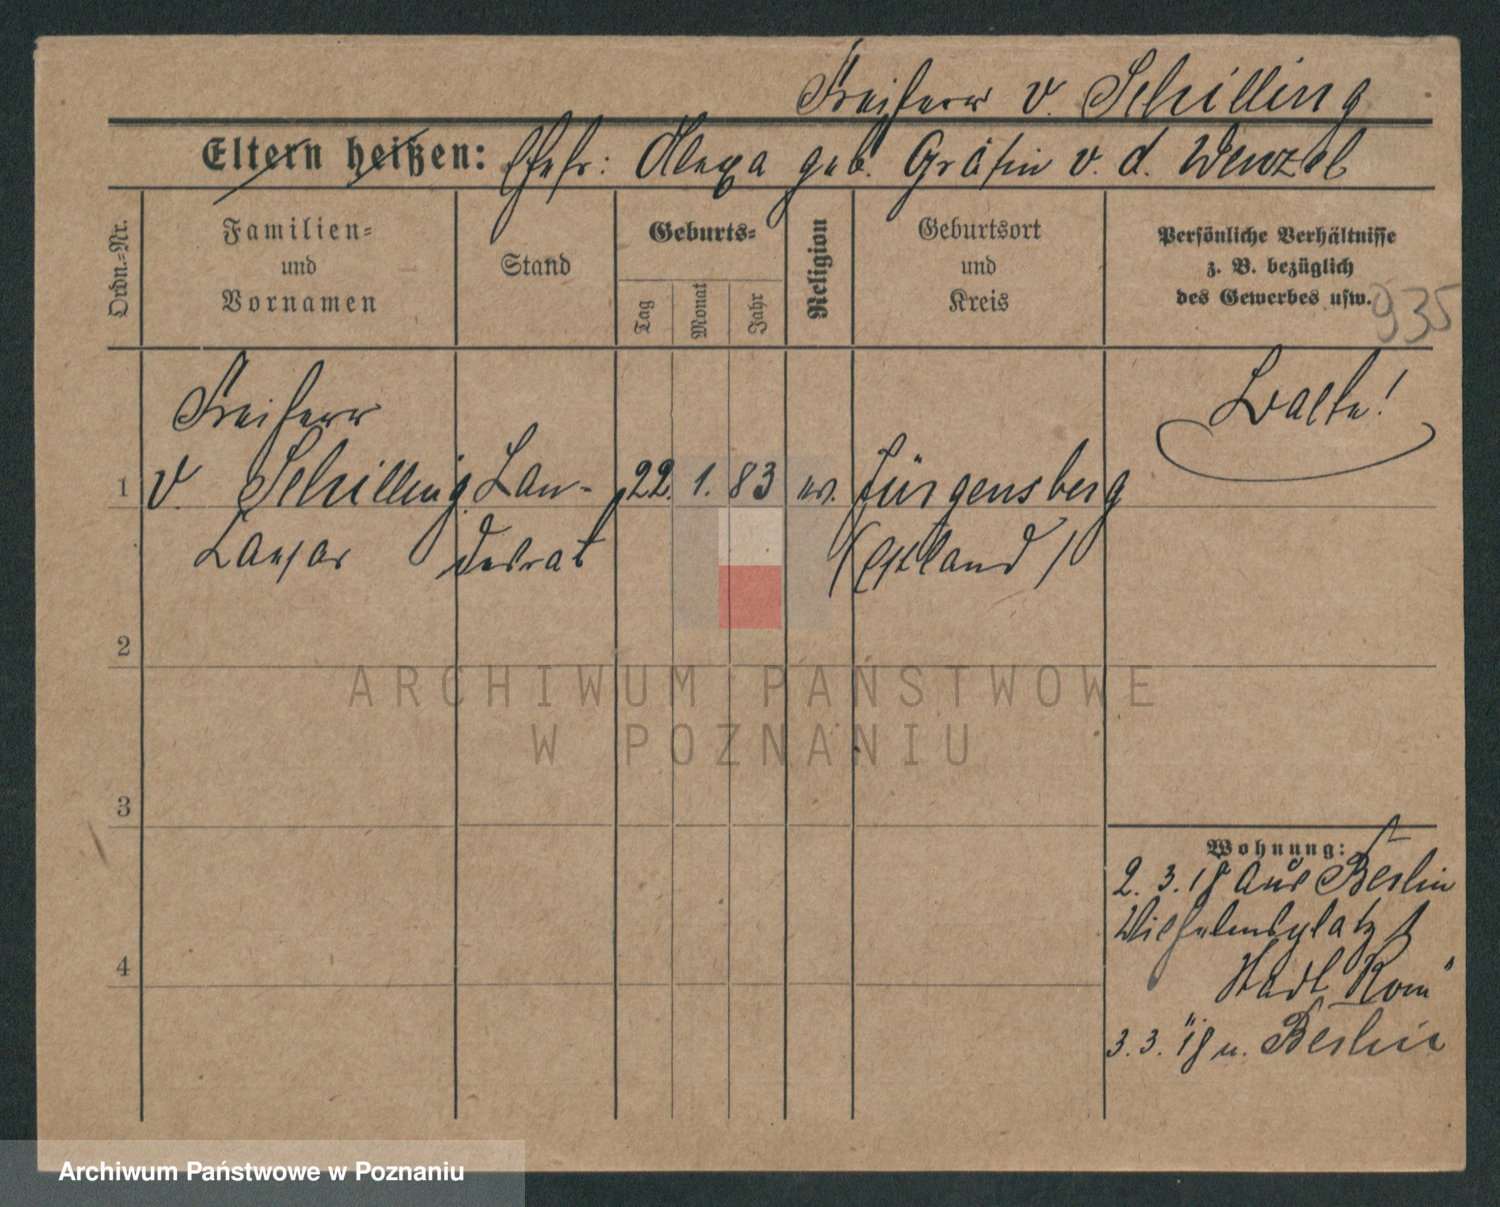 Freiherr v. Schilling
Eltern heißen: Ehefr: Alexa geb. Gräfin v. d. Wenzel
Ordn.=Nr.
Familien=
und
Vornamen
Stand
Geburts=
Tag
Monat
Jahr
Religion
Geburtsort
und
Kreis
Persönliche Verhältnisse
z. B. bezüglich
des Gewerbes usw.
935
Freiherr
1 v. Schilling Lan- 22. 1. 83 ev. Jürgensberg
desrat (Estland)
2
3
4
Wohnung:
2. 3. 18 aus Berlin
Wilhelmsplatz 1
Hotel Rom"
3. 3. 18 n. Berlin
ARCHIWUM PAŃSTWOWE
W POZNANIU
Archiwum Państwowe w Poznaniu